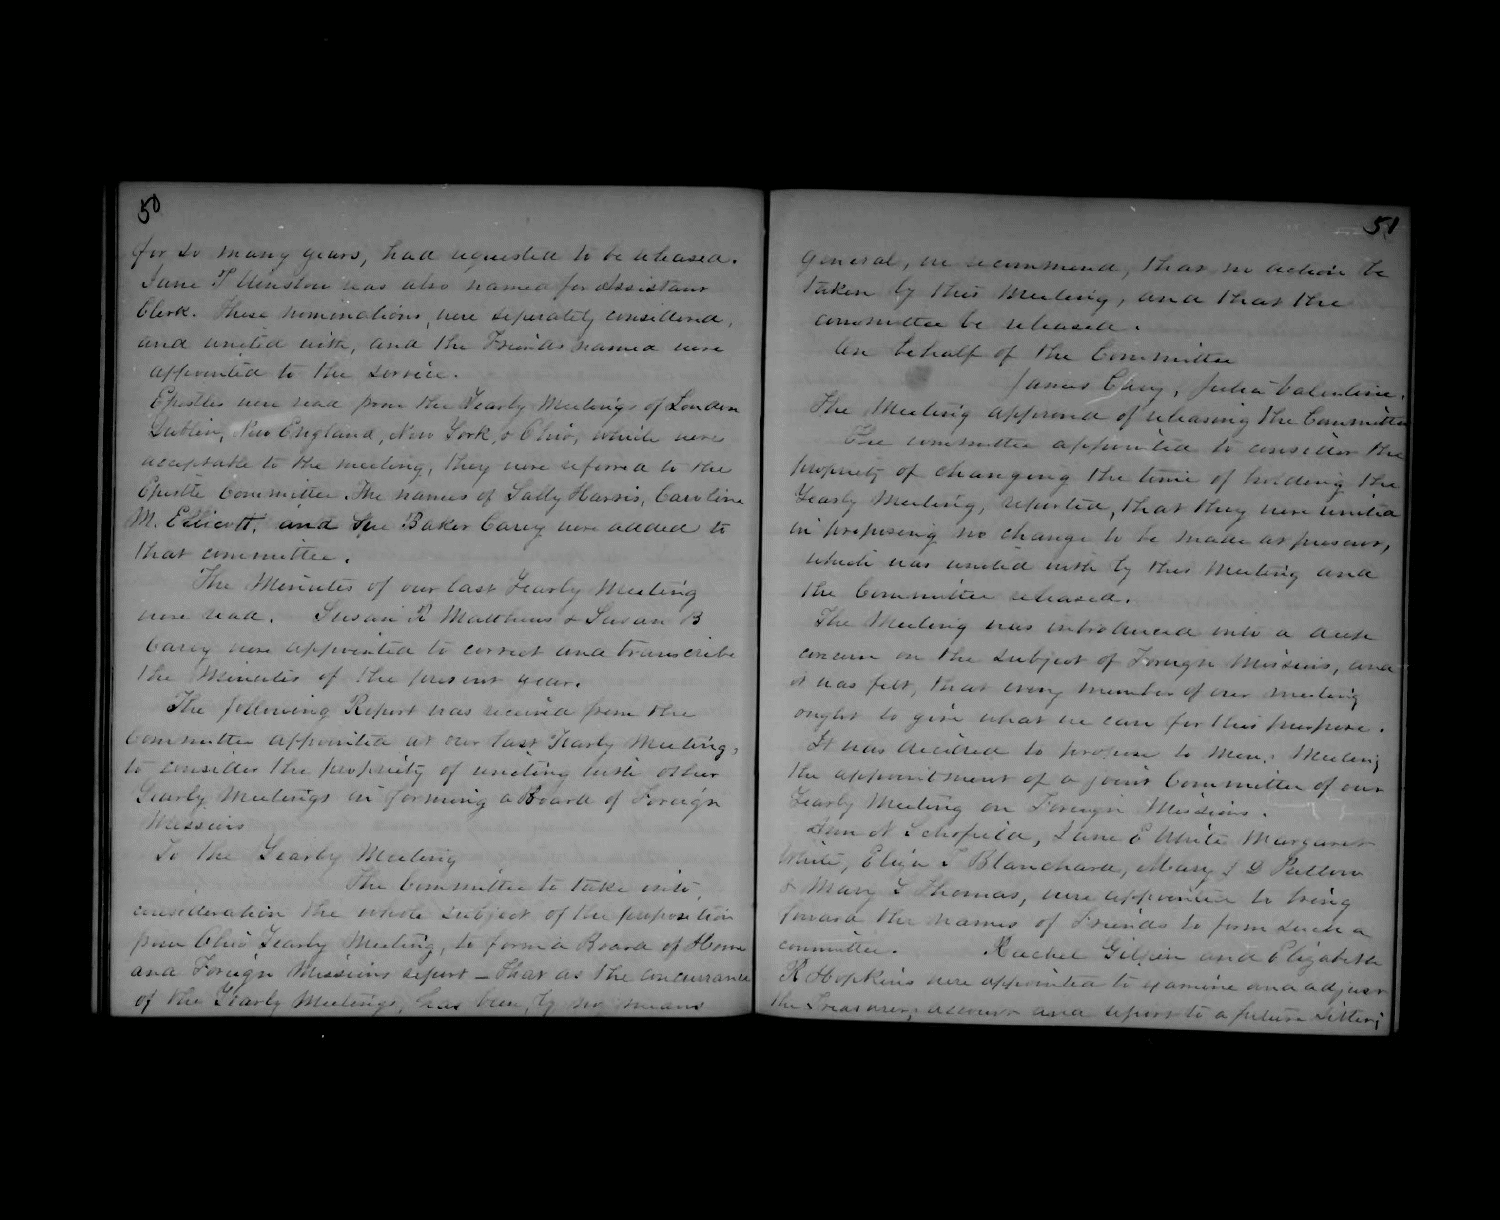 50
for so many years, had requested to be released.
Jane T Winston was also named for Assistant
Clerk. These nominations, were seperately considered,
and united with, and the Friends named were
appointed to the service.
Epistles were read from the Yearly Meetings of London
Dublin, New England, New York, & Ohio, which were
acceptable to the meeting, they were referred to the
Epistle Committee The names of Sally Harris, Caroline
M. Ellicott, and Sue Baker Carey were added to
that committee.
The Minutes of our last Yearly Meeting
were read. Susan R Matthews & Susan B
Carey were appointed to correct and transcribe
the Minutes of the present year.
The following Report was received from the
Committee appointed at our last Yearly Meeting,
to consider the propriety of uniting with other
Yearly Meetings in forming a Board of Foreign
Missions
To the Yearly Meeting
The Committee to take into
consideration the whole subject of the proposition
from Ohio Yearly Meeting, to form a Board of Home
and Foreign Missions report – That as the concurrance
of the Yearly Meetings, has been, by no means
51
general, we recommend, that no action be
taken by this Meeting, and that the
committee be released.
On behalf of the Committee
James Carey, Julia Valentine.
The Meeting approved of releasing the Committee
The committee appointed to consider the
propriety of changing the time of holding the
Yearly Meeting, reported, that they were united
in proposing no change to be made at present,
which was united with by this Meeting and
the Committee released.
The Meeting was introduced into a deep
concern on the subject of Foreign Missions, and
it was felt, that every member of our meeting
ought to give what we can for this purpose.
It was decided to propose to Men's Meeting
the appointment of a joint Committee of our
Yearly Meeting on Foreign Missions.
Ann N Schofield, Jane E White Margaret
White, Eliza S Blanchard, Mary J D
& Mary S Thomas, were appointed to bring
forward the names of Friends to form such a
committee. Rachel Gilpin and Elizabeth
R Hopkins were appointed to examine and adjust
the Treasurers, account and report to a future sitting